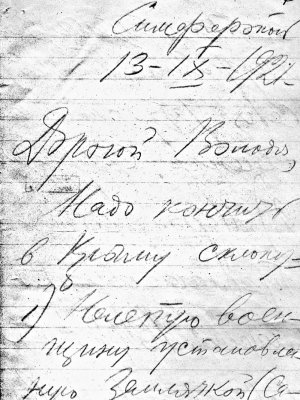 Симферополь
13-IX-1921.
Дорогой Володя,
Надо кончить
в Крыму
1) Нелепую воен-
щину установлен
ную Землячкой (Са-